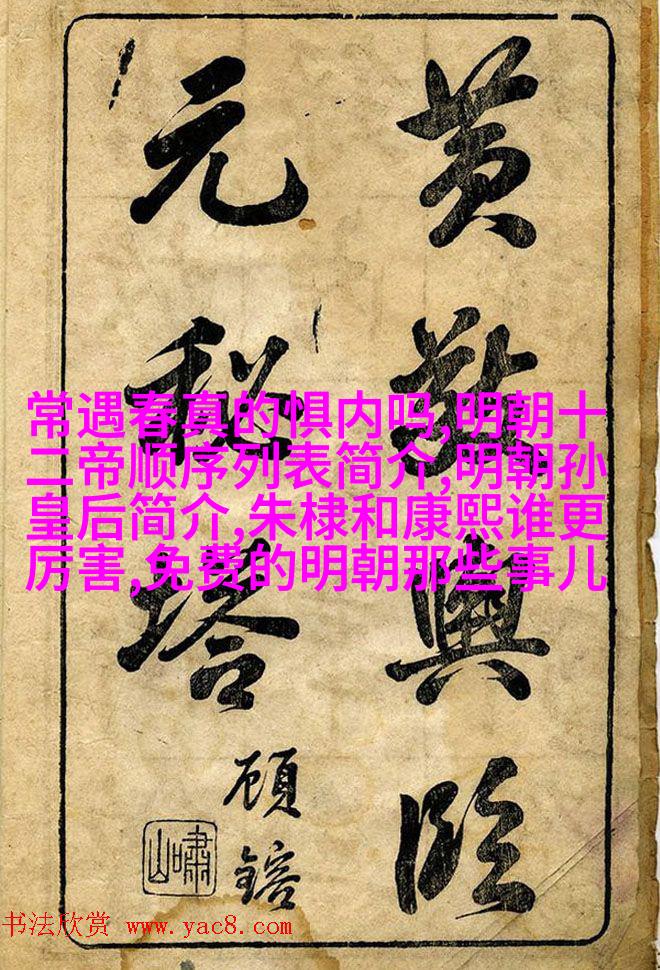 黃敬輿臨
元秘塔
顧鎔
嘯山
常遇春真的惧内吗,明朝十
二帝顺序列表简介,明朝孙
皇后简介,朱棣和康熙谁更
厉害,免费的明朝那些事儿
书法欣赏 www.yac8.com